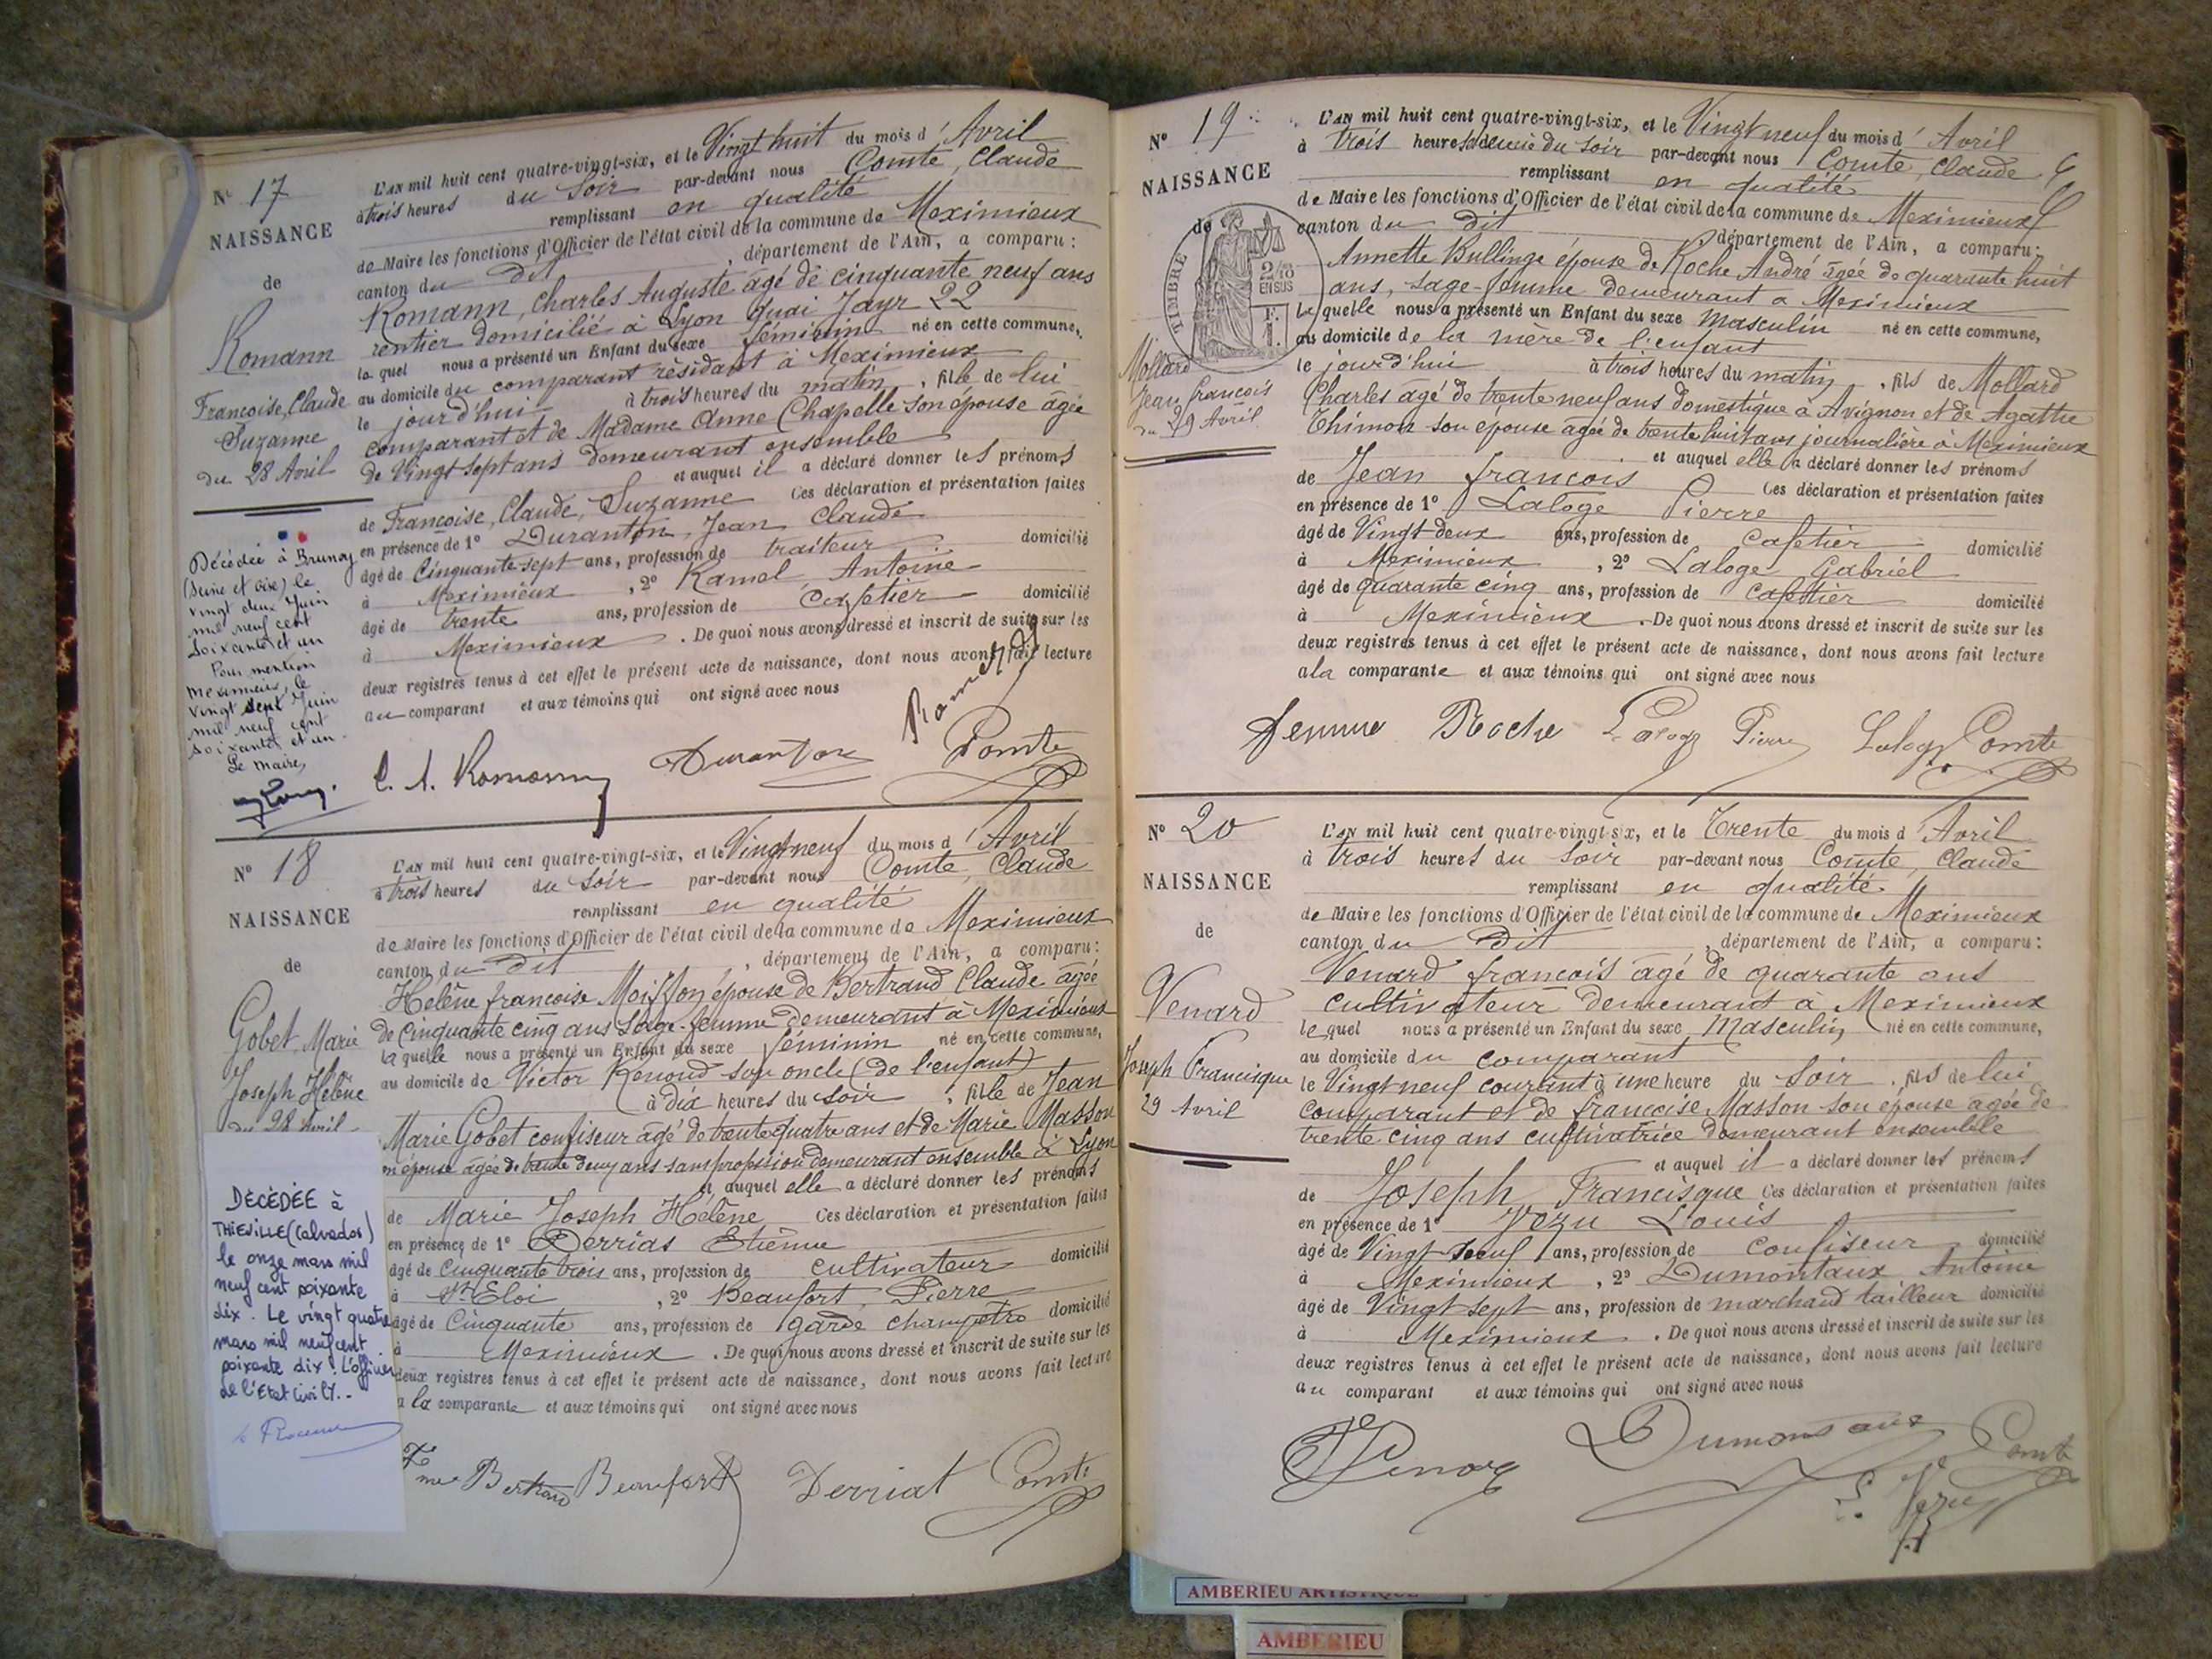 N° 17
NAISSANCE
de
Romann
Françoise, Claude
Suzanne
du 28 Avril
Décédée à Brunoy
(Seine et Oise) le
vingt deux Juin
mil neuf cent
soixante et un
Pour mention
Meximieux, le
vingt sept Juin
mil neuf cent
soixante et un.
Le maire,
L'AN mil huit cent quatre-vingt-six, et le Vingt huit du mois d'Avril
à trois heures du Soir par-devant nous Comte, Claude
remplissant en qualité
de Maire les fonctions d'Officier de l'état civil de la commune de Meximieux
canton du dit, département de l'Ain, a comparu:
Romann, Charles Auguste âgé de cinquante neuf ans
rentier domicilié à Lyon Quai Jayr 22
le quel nous a présenté un Enfant du sexe féminin né en cette commune,
au domicile du comparant résidant à Meximieux
le jourd'hui à trois heures du matin, fille de lui
comparant et de Madame Anne Chapelle son épouse âgée
de Vingt sept ans demeurant ensemble
et auquel il a déclaré donner les prénoms
de Françoise, Claude, Suzanne Ces déclaration et présentation faites
en présence de 1° Duranton, Jean Claude
âgé de Cinquante sept ans, profession de traiteur domicilié
à Meximieux, 2° Ramel Antoine
âgé de trente ans, profession de Cafetier domicilié
à Meximieux. De quoi nous avons dressé et inscrit de suite sur les
deux registres tenus à cet effet le présent acte de naissance, dont nous avons fait lecture
au comparant et aux témoins qui ont signé avec nous
C. A. Romann Duranton Ramel Comte
N° 18
NAISSANCE
de
Gobet, Marie
Joseph Hélène
du 28 Avril
DÉCÉDÉE à
THIEVILLE (Calvados)
le onze mars mil
neuf cent soixante
dix. Le vingt quatre
mars mil neuf cent
soixante dix. L'officier
de l'Etat Civil.-
L'AN mil huit cent quatre-vingt-six, et le Vingt neuf du mois d'Avril
à trois heures du Soir par-devant nous Comte, Claude
remplissant en qualité
de Maire les fonctions d'Officier de l'état civil de la commune de Meximieux
canton du dit, département de l'Ain, a comparu:
Helène françoise Moiffon épouse de Bertrand Claude âgée
de Cinquante cinq ans Sage-femme demeurant à Meximieux
la quelle nous a présenté un Enfant du sexe féminin né en cette commune,
au domicile de Victor Renoud son oncle (de l'enfant)
à dix heures du soir, fille de Jean
Marie Gobet confiseur âgé de trente quatre ans et de Marie Masson
son épouse âgée de trente deux ans sans profession demeurant ensemble à Lyon
et auquel elle a déclaré donner les prénoms
de Marie Joseph Hélène Ces déclaration et présentation faites
en présence de 1° Derrias Etienne
âgé de Cinquante trois ans, profession de cultivateur domicilié
à St Eloi, 2° Beaufort, Pierre
âgé de Cinquante ans, profession de garde champêtre domicilié
à Meximieux. De quoi nous avons dressé et inscrit de suite sur les
deux registres tenus à cet effet le présent acte de naissance, dont nous avons fait lecture
a la comparante et aux témoins qui ont signé avec nous
Fme Bertrand Beaufort Derriat Comte
N° 19
NAISSANCE
de
TIMBRE
2/10
EN SUS
Mollard
Jean François
du 29 Avril
L'AN mil huit cent quatre-vingt-six, et le Vingt neuf du mois d'Avril
à trois heures & demie du Soir par-devant nous Comte, Claude
remplissant en qualité
de Maire les fonctions d'Officier de l'état civil de la commune de Meximieux
canton du dit département de l'Ain, a comparu:
Annette Bullinge épouse de Roche André âgée de quarante huit
ans, sage-femme demeurant à Meximieux
La quelle nous a présenté un Enfant du sexe masculin né en cette commune,
au domicile de la mère de l'enfant
le jourd'hui à trois heures du matin, fils de Mollard
Charles âgé de trente neuf ans domestique à Avignon et de Agathe
Thimon son épouse âgée de trente huit ans journalière à Meximieux
et auquel elle a déclaré donner les prénoms
de Jean françois Ces déclaration et présentation faites
en présence de 1° Laloge Pierre
âgé de Vingt deux ans, profession de Cafetier domicilié
à Meximieux, 2° Laloge Gabriel
âgé de quarante cinq ans, profession de Cafetier domicilié
à Meximieux. De quoi nous avons dressé et inscrit de suite sur les
deux registres tenus à cet effet le présent acte de naissance, dont nous avons fait lecture
a la comparante et aux témoins qui ont signé avec nous
femme Roche Laloge Pierre Laloge Comte
N° 20
NAISSANCE
de
Venard
Joseph Francisque
29 Avril
L'AN mil huit cent quatre-vingt-six, et le Trente du mois d'Avril
à trois heures du Soir par-devant nous Comte, Claude
remplissant en qualité
de Maire les fonctions d'Officier de l'état civil de la commune de Meximieux
canton du Dit, département de l'Ain, a comparu:
Venard françois âgé de quarante ans
cultivateur demeurant à Meximieux
le quel nous a présenté un Enfant du sexe Masculin né en cette commune,
au domicile du comparant
le Vingt neuf courant à une heure du Soir, fils de lui
comparant et de françoise Masson son épouse âgée de
trente cinq ans cultivatrice demeurant ensemble
et auquel il a déclaré donner les prénoms
de Joseph Francisque Ces déclaration et présentation faites
en présence de 1° Vezu Louis
âgé de Vingt neuf ans, profession de confiseur domicilié
à Meximieux, 2° Dumontaux Antoine
âgé de Vingt sept ans, profession de marchand tailleur domicilié
à Meximieux. De quoi nous avons dressé et inscrit de suite sur les
deux registres tenus à cet effet le présent acte de naissance, dont nous avons fait lecture
au comparant et aux témoins qui ont signé avec nous
Dumontaux Comte
L. Vezu
AMBERIEU ARTISTIQUE
AMBERIEU